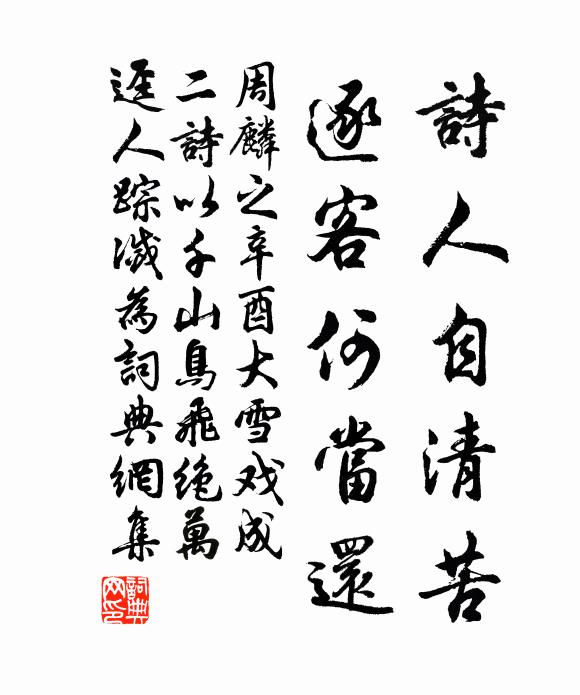 詩人自清苦
逐客何當還
周麟之辛酉大雪戏成
二詩以千山鳥飛絶萬
逕人踪滅為詞典網集
詞典网印